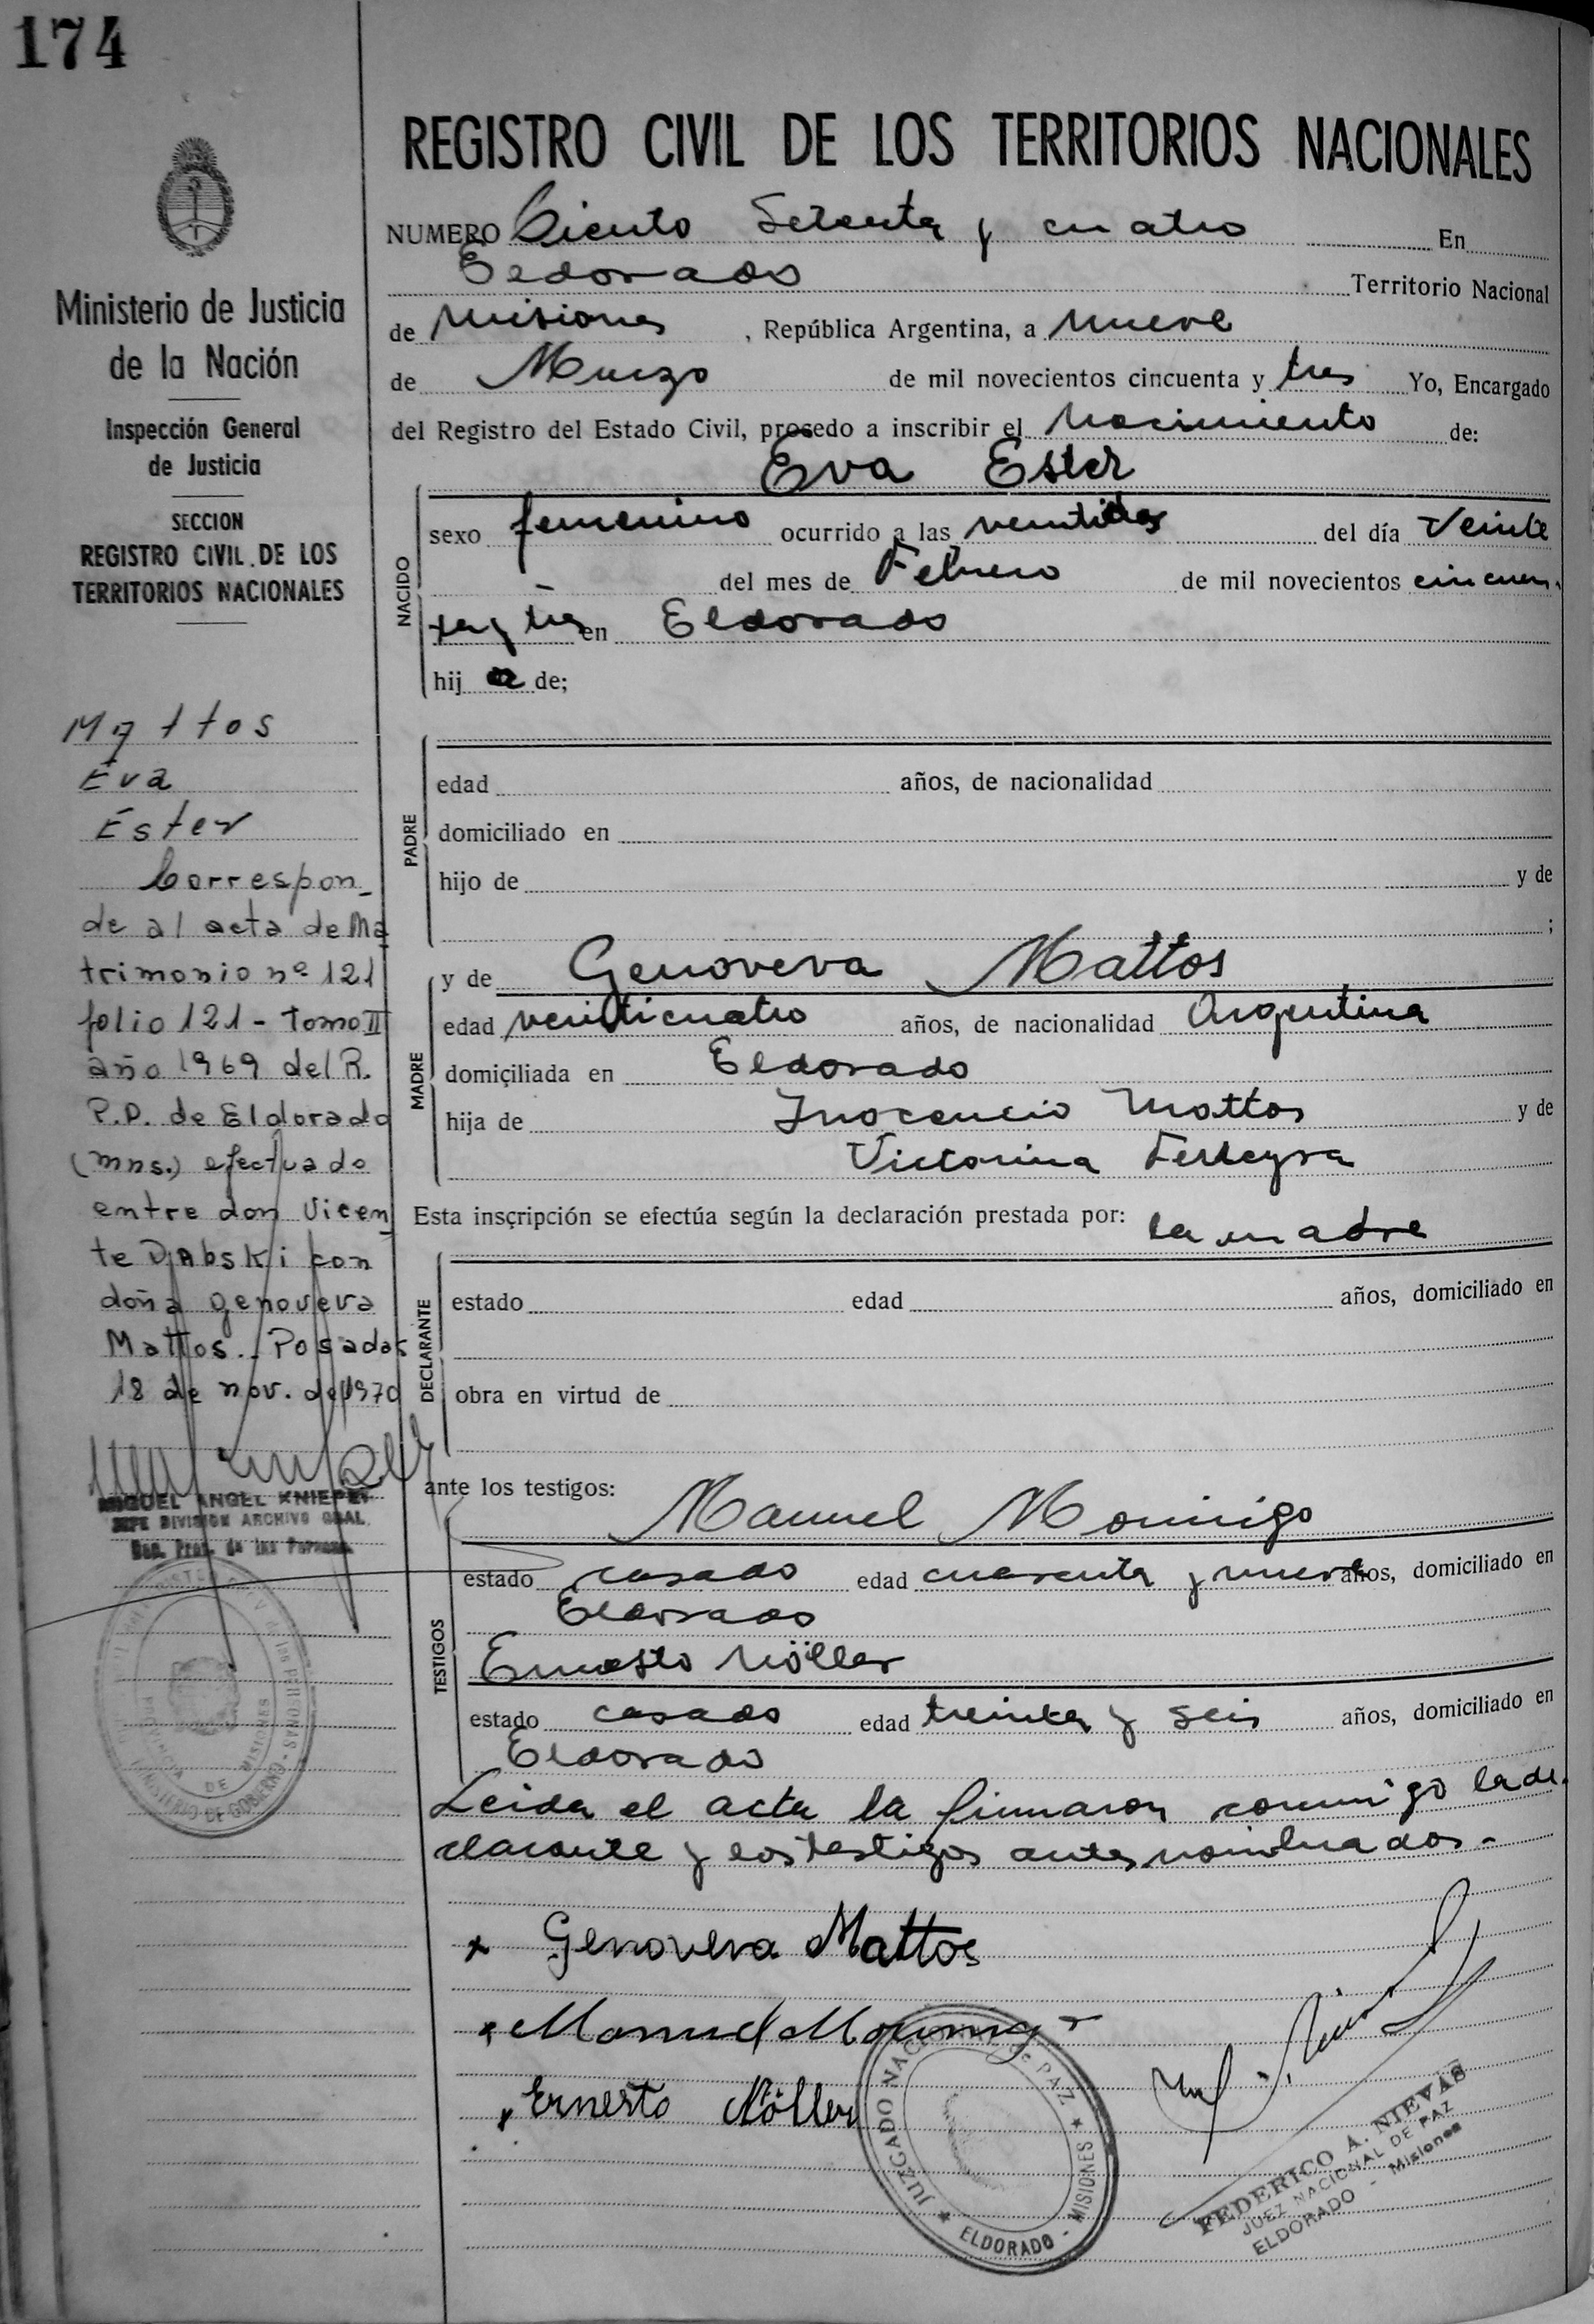 174
REGISTRO CIVIL DE LOS TERRITORIOS NACIONALES
NUMERO Ciento Setenta y cuatro En
Eldorado Territorio Nacional
de Misiones, República Argentina, a nueve
de Marzo de mil novecientos cincuenta y tres Yo, Encargado
del Registro del Estado Civil, procedo a inscribir el Nacimiento de:
Eva Ester
NACIDO
sexo femenino ocurrido a las del día Veinte
del mes de Febrero de mil novecientos cincuen
ta y tres en Eldorado
hij a de;
PADRE
edad años, de nacionalidad
domiciliado en
hijo de y de
;
MADRE
y de Genoveva Mattos
edad veinticuatro años, de nacionalidad Argentina
domiciliada en Eldorado
hija de Inocencio Mattos y de
Victorina Ferreyra
Esta inscripción se efectúa según la declaración prestada por: la madre
DECLARANTE
estado edad años, domiciliado en
obra en virtud de
ante los testigos:
TESTIGOS
Manuel Mornigo
estado casado edad cuarenta y nueve años, domiciliado en
Eldorado
Ernesto Nöller
estado casado edad treinta y seis años, domiciliado en
Eldorado
Leida el acta la firmaron conmigo la de
clarante y los testigos antes nombrados.-
x Genoveva Mattos
x Manuel Mornigo
x Ernesto Nöller
JUZGADO NACIONAL DE PAZ
ELDORADO - MISIONES
FEDERICO A. NIEVAS
JUEZ NACIONAL DE PAZ
ELDORADO - Misiones
Ministerio de Justicia
de la Nación
Inspección General
de Justicia
SECCION
REGISTRO CIVIL DE LOS
TERRITORIOS NACIONALES
Mattos
Eva
Ester
Correspon-
de al acta de Ma
trimonio nº 121
folio 121 - tomo II
año 1969 del R.
P.P. de Eldorado
(mns.) efectuado
entre don Vicen
te DAbski con
doña Genoveva
Mattos.- Posadas
18 de nov. de 1970
MIGUEL ANGEL KNIEPEI
JEFE DIVISION ARCHIVO GRAL.
Reg. Prov. de las Personas
PROVINCIA DE MISIONES
MINISTERIO DE GOBIERNO